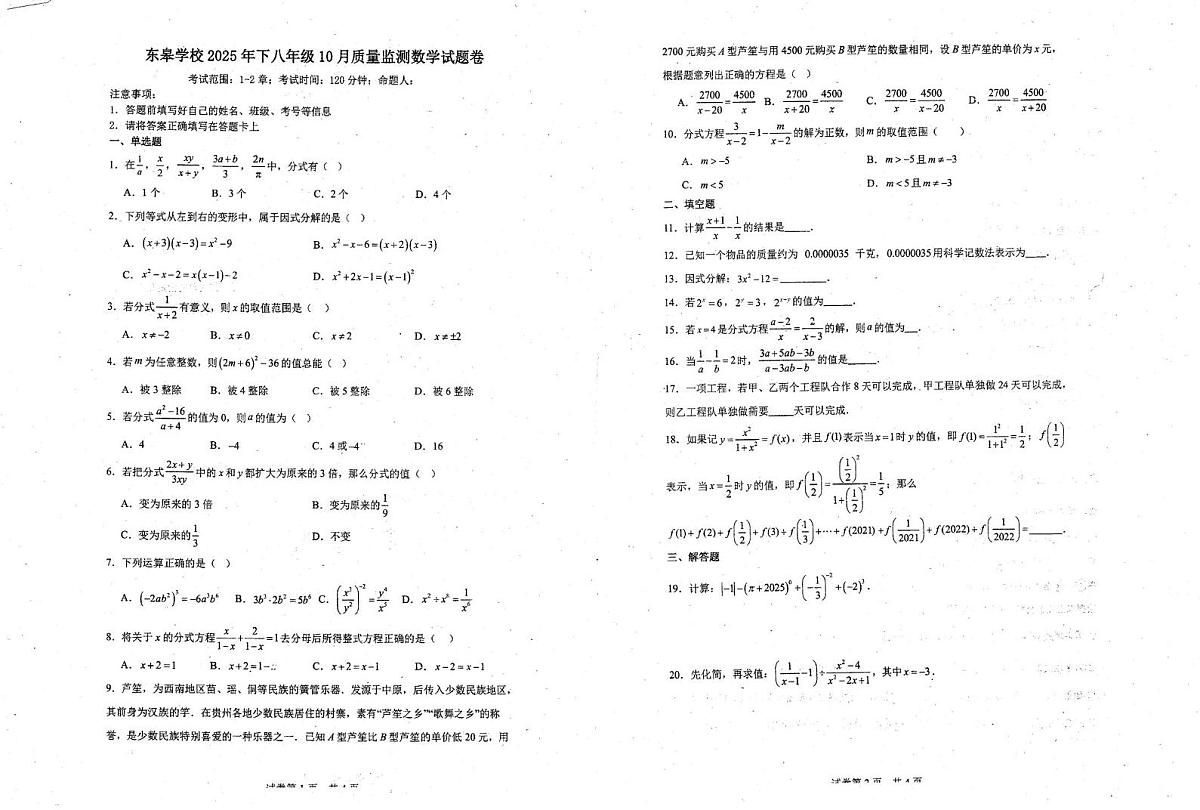 东皋学校 2025 年下八年级 10 月质量监测数学试题卷
考试范围：1-2 章；考试时间：120 分钟；命题人：
注意事项：
1．答题前填写好自己的姓名、班级、考号等信息
2．请将答案正确填写在答题卡上
一、单选题
1．在 1/a，x/2，xy/(x+y)，(3a+b)/3，2n/π 中，分式有（ ）
A．1 个 B．3 个 C．2 个 D．4 个
2．下列等式从左到右的变形中，属于因式分解的是（ ）
A．(x+3)(x−3)=x²−9 B．x²−x−6=(x+2)(x−3)
C．x²−x−2=x(x−1)−2 D．x²+2x−1=(x−1)²
3．若分式 1/(x+2) 有意义，则 x 的取值范围是（ ）
A．x≠−2 B．x≠0 C．x≠2 D．x≠±2
4．若 m 为任意整数，则(2m+6)²−36 的值总能（ ）
A．被 3 整除 B．被 4 整除 C．被 5 整除 D．被 6 整除
5．若分式 (a²−16)/(a+4) 的值为 0，则 a 的值为（ ）
A．4 B．−4 C．4 或−4 D．16
6．若把分式 (2x+y)/(3xy) 中的 x 和 y 都扩大为原来的 3 倍，那么分式的值（ ）
A．变为原来的 3 倍 B．变为原来的 1/9
C．变为原来的 1/3 D．不变
7．下列运算正确的是（ ）
A．(−2ab²)³=−6a³b⁶ B．3b³·2b²=5b⁶ D．x²÷x⁸=1/x⁶
8．将关于 x 的分式方程 x/(1−x)+2/(1−x)=1 去分母后所得整式方程正确的是（ ）
A．x+2=1 B．x+2=1− C．x+2=x−1 D．x−2=x−1
9．芦笙，为西南地区苗、瑶、侗等民族的簧管乐器．发源于中原，后传入少数民族地区，
其前身为汉族的竽．在贵州各地少数民族居住的村寨，素有“芦笙之乡”“歌舞之乡”的称
誉，是少数民族特别喜爱的一种乐器之一．已知 A 型芦笙比 B 型芦笙的单价低 20 元，用
试卷第 1 页 共 4 页
2700 元购买 A 型芦笙与用 4500 元购买 B 型芦笙的数量相同，设 B 型芦笙的单价为 x 元，
根据题意列出正确的方程是（ ）
A．2700/(x−20)=4500/x B．2700/(x+20)=4500/x C．2700/x=4500/(x−20) D．2700/x=4500/(x+20)
10．分式方程 3/(x−2)=1−m/(x−2) 的解为正数，则 m 的取值范围（ ）
A．m>−5 B．m>−5且m≠−3
C．m<5 D．m<5且m≠−3
二、填空题
11．计算 (x+1)/x−1/x 的结果是____．
12．已知一个物品的质量约为 0.0000035 千克，0.0000035 用科学记数法表示为____．
13．因式分解：3x²−12=________．
14．若 2ˣ=6，2ʸ=3，2ˣ⁻ʸ 的值为_____．
15．若 x=4 是分式方程 (a−2)/x=2/(x−3) 的解，则 a 的值为__．
16．当 1/a−1/b=2 时，(3a+5ab−3b)/(a−3ab−b) 的值是_____．
17．一项工程，若甲、乙两个工程队合作 8 天可以完成，甲工程队单独做 24 天可以完成，
则乙工程队单独做需要____天可以完成．
18．如果记 y=x²/(1+x²)=f(x)，并且 f(1)表示当 x=1 时 y 的值，即 f(1)=1²/(1+1²)=1/2；f(1/2)
表示，当 x=1/2 时 y 的值，即 f(1/2)=(1/2)²/(1+(1/2)²)=1/5；那么
f(1)+f(2)+f(1/2)+f(3)+f(1/3)+⋯+f(2021)+f(1/2021)+f(2022)+f(1/2022)=______．
三、解答题
19．计算：|−1|−(π+2025)⁰+(−1/3)⁻²+(−2)³．
20．先化简，再求值：(1/(x−1)−1)÷(x²−4)/(x²−2x+1)，其中 x=−3．
试卷第 2 页 共 4 页